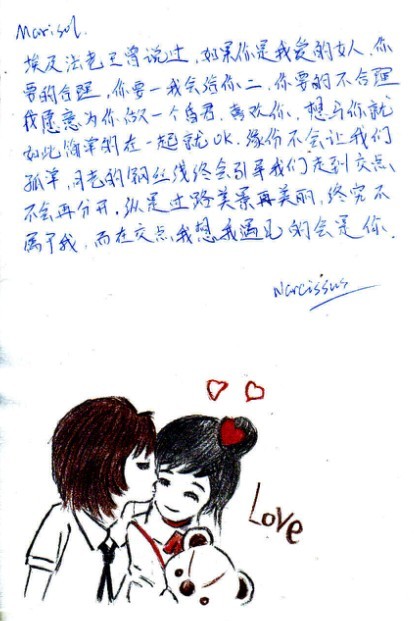 Marisol.
埃及法老王曾说过,如果你是我爱的女人,你
要的合理,你要一我会给你二,你要的不合理
我愿意为你做一个昏君,喜欢你,想与你就
如此简单的在一起就OK.缘份不会让我们
孤单,月老的钢丝线终会引导我们走到交点,
不会再分开,纵是过路美景再美丽,终究不
属于我,而在交点,我想我遇见的会是你.
Narcissus
Love